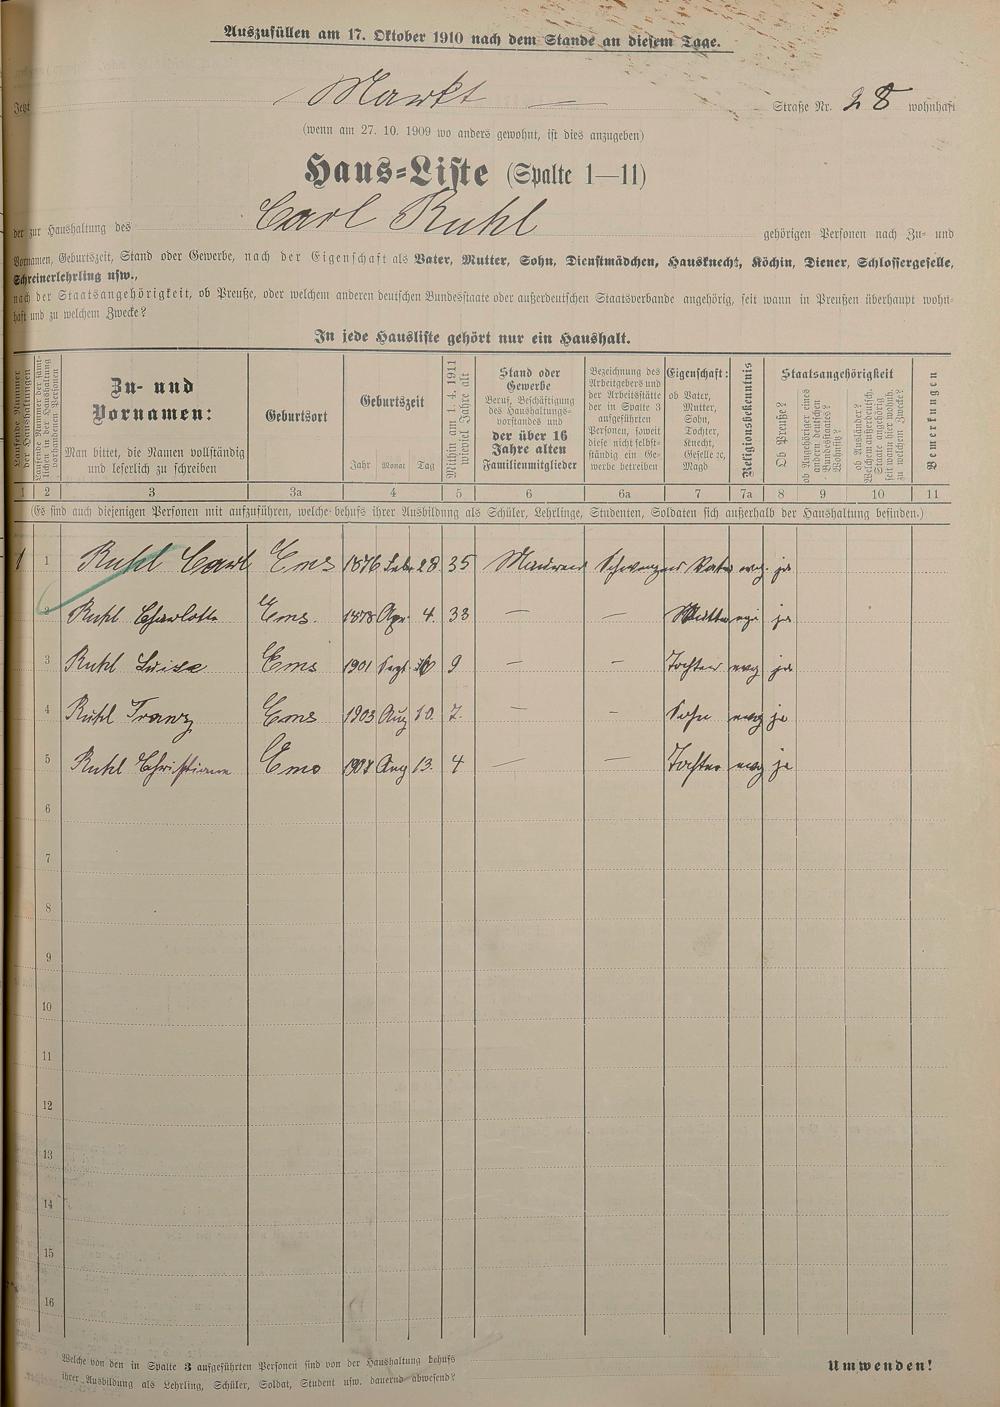 Auszufüllen am 17. Oktober 1910 nach dem Stande an diesem Tage.
Jetzt Markt — Straße Nr. 28 wohnhaft
(wenn am 27. 10. 1909 wo anders gewohnt, ist dies anzugeben)
Haus-Liste (Spalte 1—11)
der zur Haushaltung des Carl Ruhl gehörigen Personen nach Zu- und
Vornamen, Geburtszeit, Stand oder Gewerbe, nach der Eigenschaft als Vater, Mutter, Sohn, Dienstmädchen, Hausknecht, Köchin, Diener, Schlossergeselle,
Schreinerlehrling usw.,
nach der Staatsangehörigkeit, ob Preuße, oder welchem anderen deutschen Bundesstaate oder außerdeutschen Staatsverbande angehörig, seit wann in Preußen überhaupt wohn-
haft und zu welchem Zwecke?
In jede Hausliste gehört nur ein Haushalt.
Laufende Nummer
der Haushaltungen
Laufende Nummer der sämt-
lichen in der Haushaltung
vorhandenen Personen
Zu- und
Vornamen:
Man bittet, die Namen vollständig
und leserlich zu schreiben
Geburtsort
Geburtszeit
Jahr Monat Tag
Mithin am 1. 4. 1911
wieviel Jahre alt
Stand oder
Gewerbe
Beruf, Beschäftigung
des Haushaltungs-
vorstandes und
der über 16
Jahre alten
Familienmitglieder
Bezeichnung des
Arbeitgebers und
der Arbeitsstätte
der in Spalte 3
aufgeführten
Personen, soweit
diese nicht selbst-
ständig ein Ge-
werbe betreiben
Eigenschaft:
ob Vater,
Mutter,
Sohn,
Tochter,
Knecht,
Geselle ec,
Magd
Religionsbekenntnis
Staatsangehörigkeit
Ob Preuße?
ob Angehöriger eines
andern deutschen
Bundesstaates?
Wohnsitz?
ob Ausländer?
Welchem außerdeutsch.
Staate angehörig
seit wann hier wohnh.
zu welchem Zwecke?
Bemerkungen
1 2 3 3a 4 5 6 6a 7 7a 8 9 10 11
(Es sind auch diejenigen Personen mit aufzuführen, welche behufs ihrer Ausbildung als Schüler, Lehrlinge, Studenten, Soldaten sich außerhalb der Haushaltung befinden.)
1 1 Ruhl Carl Ems 1876 Feb. 28 35 Maurer Vater evg. ja
2 Ruhl Charlotte Ems. 1878 Apr. 4. 33 — — Mutter evg ja
3 Ruhl Luise Ems 1901 Sept. 9 — — Tochter evg ja
4 Ruhl Franz Ems 1903 Aug 10. 7. — — Sohn evg ja
5 Ruhl Christiane Ems Aug 13. 4 — — Tochter evg ja
6
7
8
9
10
11
12
13
14
15
16
Welche von den in Spalte 3 aufgeführten Personen sind von der Haushaltung behufs
ihrer Ausbildung als Lehrling, Schüler, Soldat, Student usw. dauernd abwesend?
Umwenden!